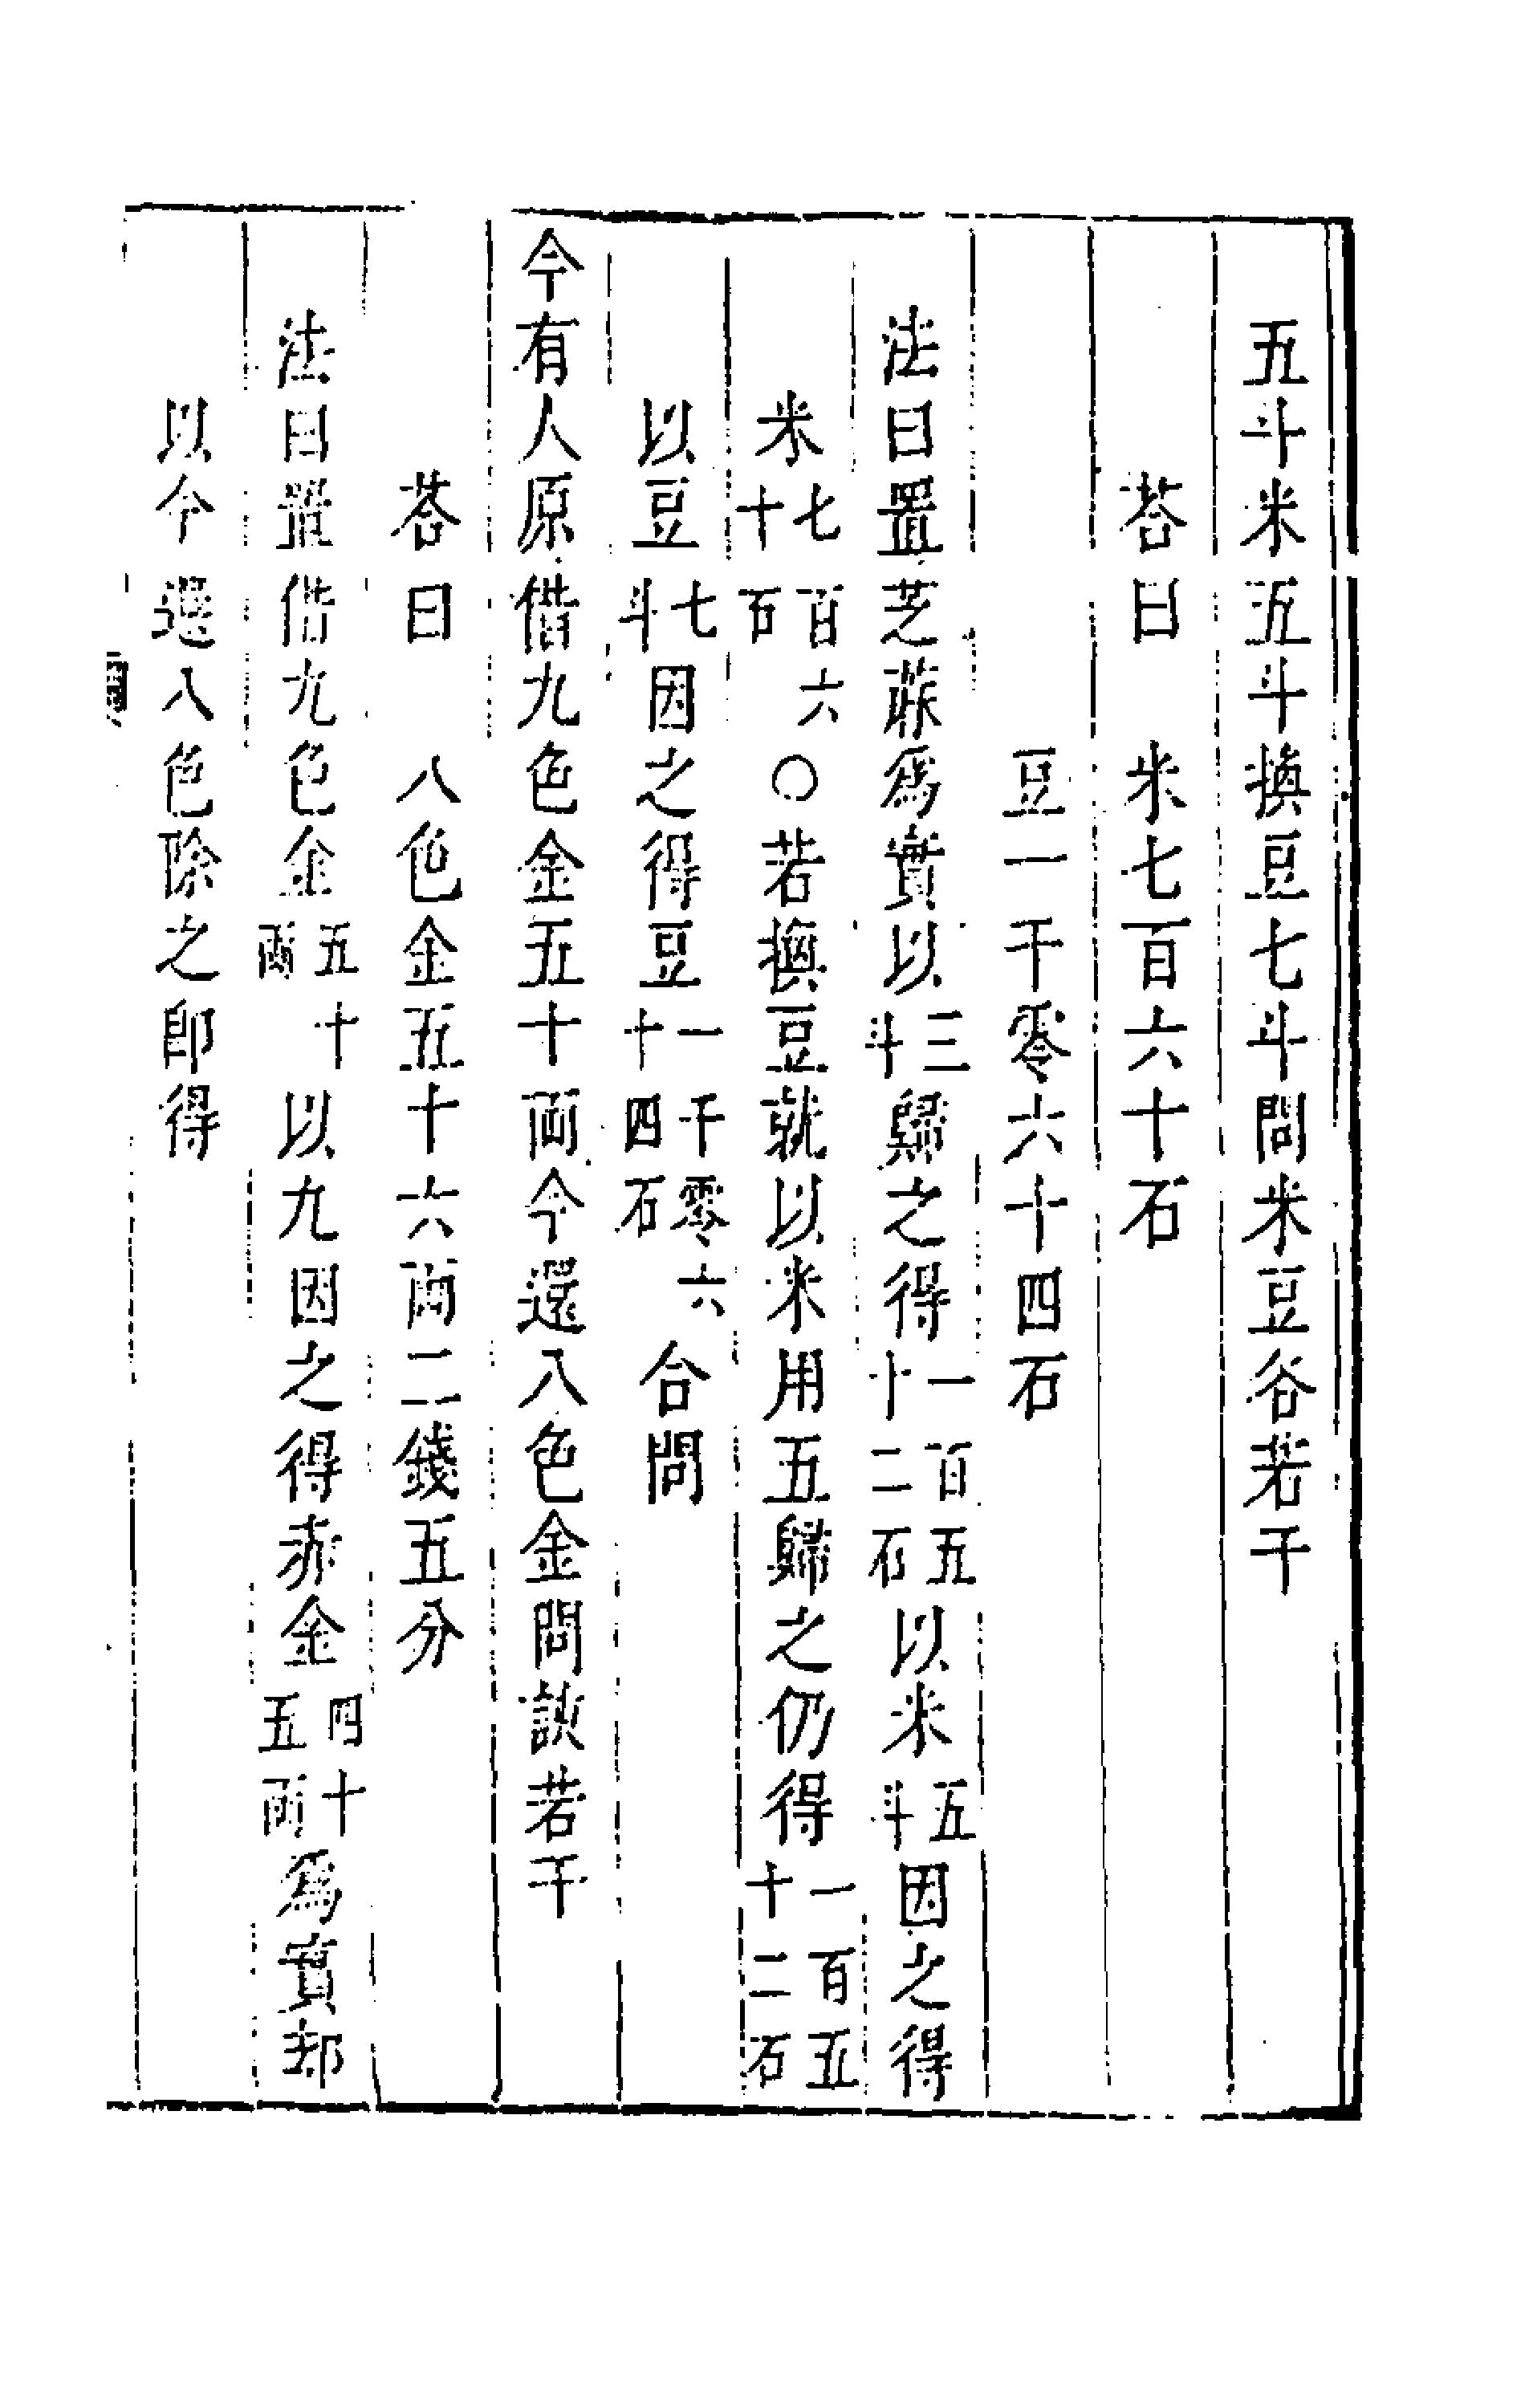 五斗米五斗換豆七斗問米豆各若干
荅曰　米七百六十石
豆一千零六十四石
法曰置芝蔴爲實以三斗歸之得一百五十二石以米五斗因之得
米七百六十石○若換豆就以米用五歸之仍得一百五十二石
以豆七斗因之得豆一千零六十四石合問
今有人原借九色金五十兩今還八色金問該若干
荅曰　八色金五十六兩二錢五分
法曰置借九色金五十兩以九因之得赤金四十五兩爲實却
以今還八色除之即得